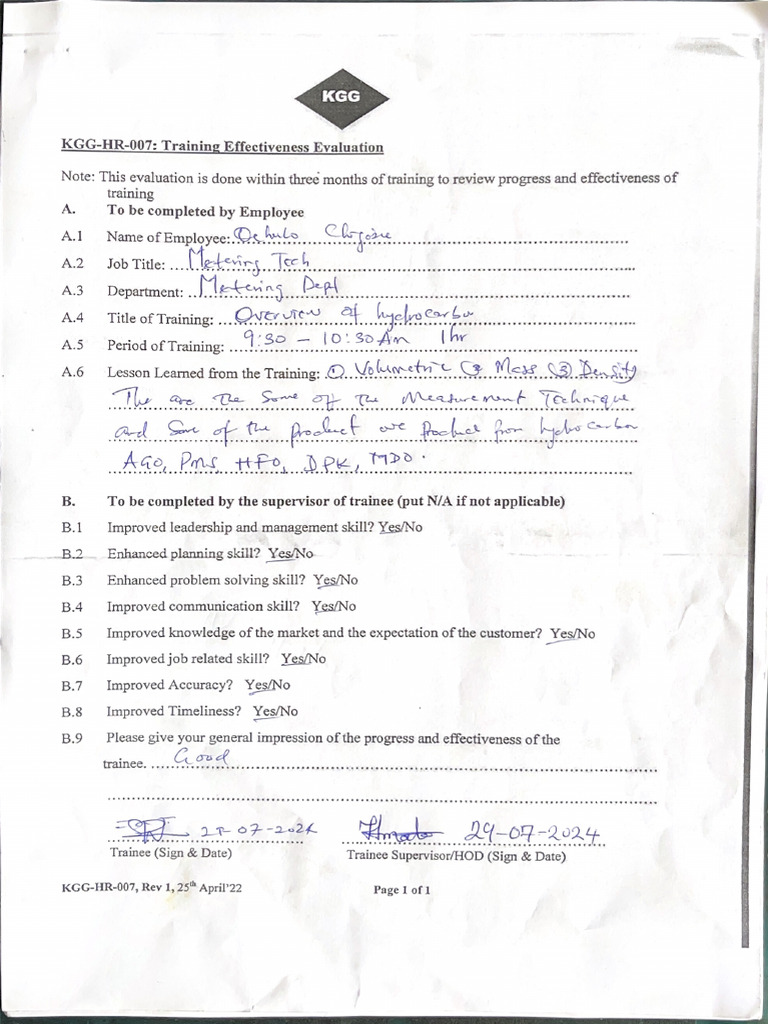 KGG
KGG-HR-007: Training Effectiveness Evaluation
Note: This evaluation is done within three months of training to review progress and effectiveness of
training
A. To be completed by Employee
A.1 Name of Employee:
A.2 Job Title: Metering Tech
A.3 Department: Metering Dept
A.4 Title of Training: Overview of hydrocarbon
A.5 Period of Training: 9:30 – 10:30Am 1hr
A.6 Lesson Learned from the Training: ① Volumetric ② Mass ③ Density
The are the Some off the Measurement Technique
and Some of the product are product from hydrocarbon
AGO, PMS, HFO, DPK, MDO.
B. To be completed by the supervisor of trainee (put N/A if not applicable)
B.1 Improved leadership and management skill? Yes/No
B.2 Enhanced planning skill? Yes/No
B.3 Enhanced problem solving skill? Yes/No
B.4 Improved communication skill? Yes/No
B.5 Improved knowledge of the market and the expectation of the customer? Yes/No
B.6 Improved job related skill? Yes/No
B.7 Improved Accuracy? Yes/No
B.8 Improved Timeliness? Yes/No
B.9 Please give your general impression of the progress and effectiveness of the
trainee. Good
29-07-2024
Trainee (Sign & Date) Trainee Supervisor/HOD (Sign & Date)
KGG-HR-007, Rev 1, 25th April'22 Page 1 of 1